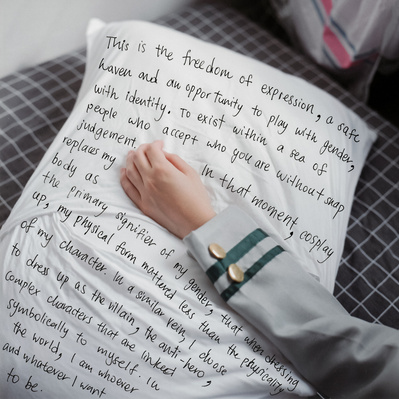 This is the freedom of expression, a safe
haven and an opportunity to play with gender,
with identity. To exist within a sea of
people who accept who you are without snap
judgement. In that moment, cosplay
replaces my
body as
the primary signifier of my gender, that when dressing
up, my physical form mattered less than the physicality
of my character. In a similar vein, I choose
to dress up as the villain, the anti-hero,
complex characters that are linked
symbolically to myself. In
the world, I am whoever
and whatever I want
to be.